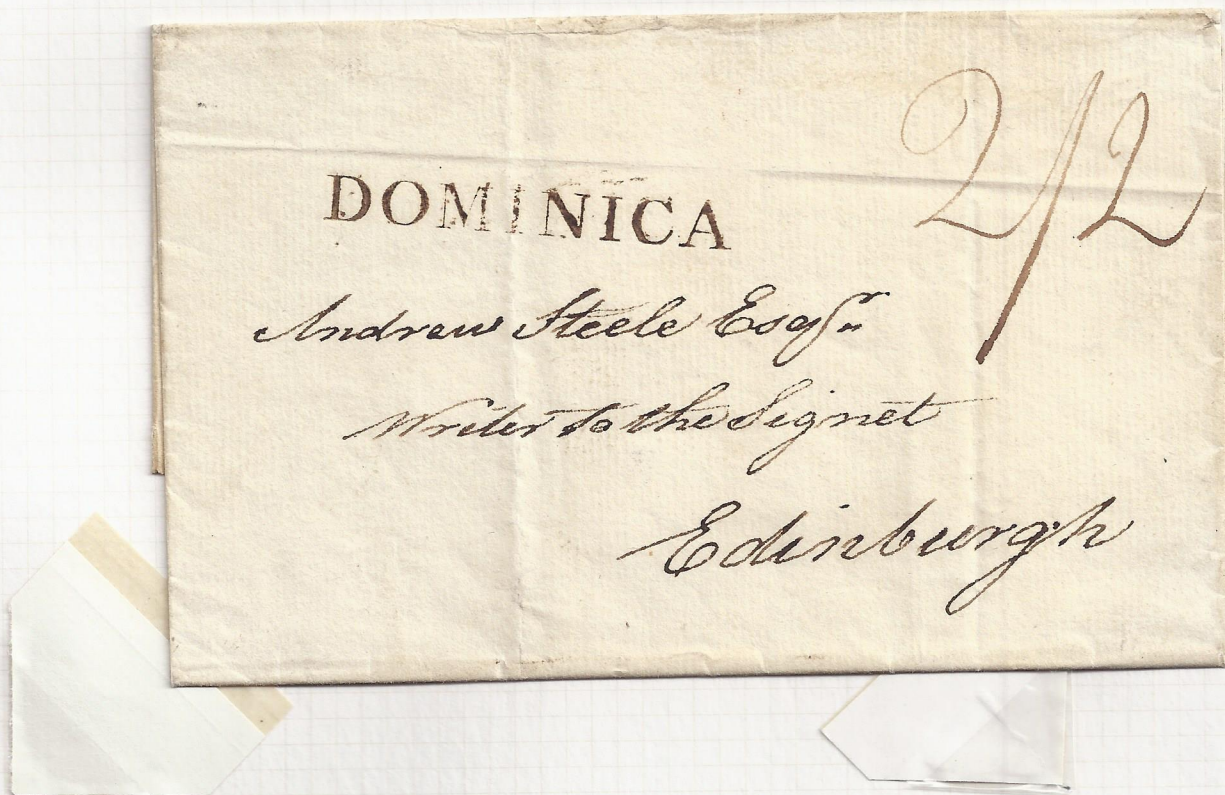 2/2
DOMINICA
Andrew Steele Esqr
Writer to the Signet
Edinburgh